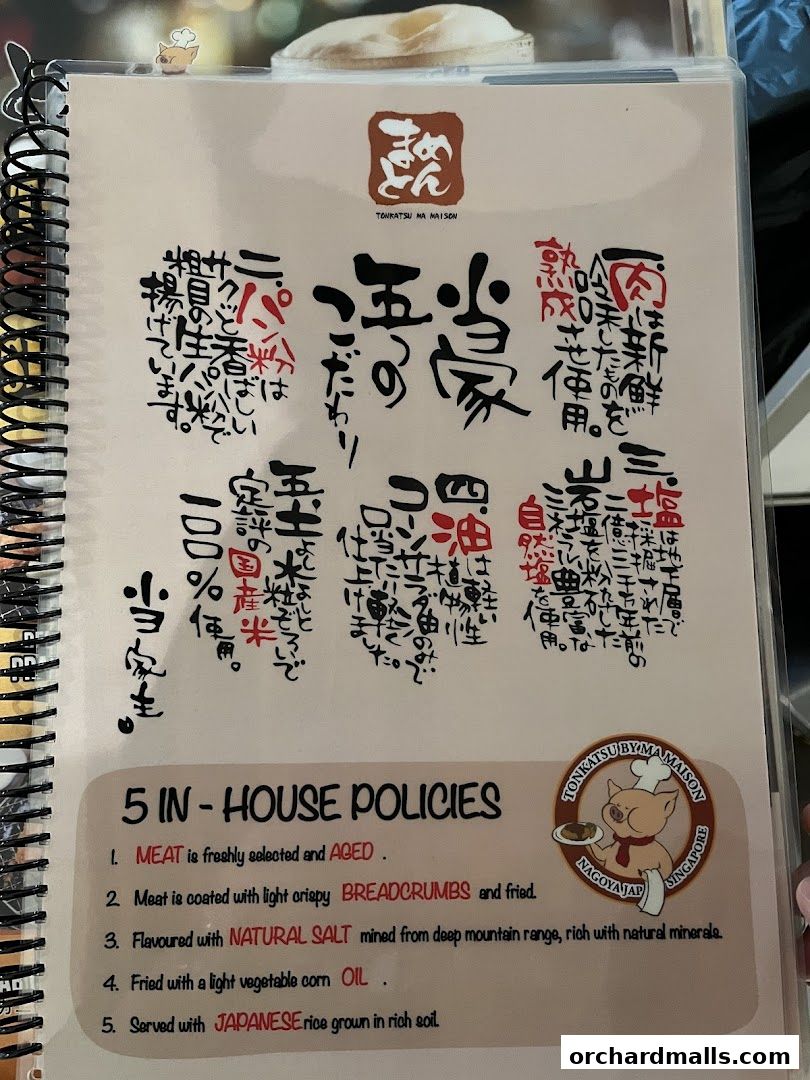 まめ
とん
TONKATSU MA MAISON
当家
五つの
こだわり
一、肉は新鮮
吟味したものを
熟成させ使用。
二、パン粉は
サクッと香ばしい
粗目の生パン粉で
揚げています。
三、塩は地下層で
採掘された
二億三千万年前の
岩塩を粉砕した
ミネラル豊富な
自然塩を使用。
四、油は軽い
植物性
コーンサラダ油のみで
口当たり軽く
仕上げました。
五、土よし水よしと
粒ぞろいで
定評の国産米
一〇〇%使用。
当家主。
TONKATSU BY MA MAISON
NAGOYA JAP SINGAPORE
5 IN - HOUSE POLICIES
1. MEAT is freshly selected and AGED .
2. Meat is coated with light crispy BREADCRUMBS and fried.
3. Flavoured with NATURAL SALT mined from deep mountain range, rich with natural minerals.
4. Fried with a light vegetable corn OIL .
5. Served with JAPANESE rice grown in rich soil.
orchardmalls.com